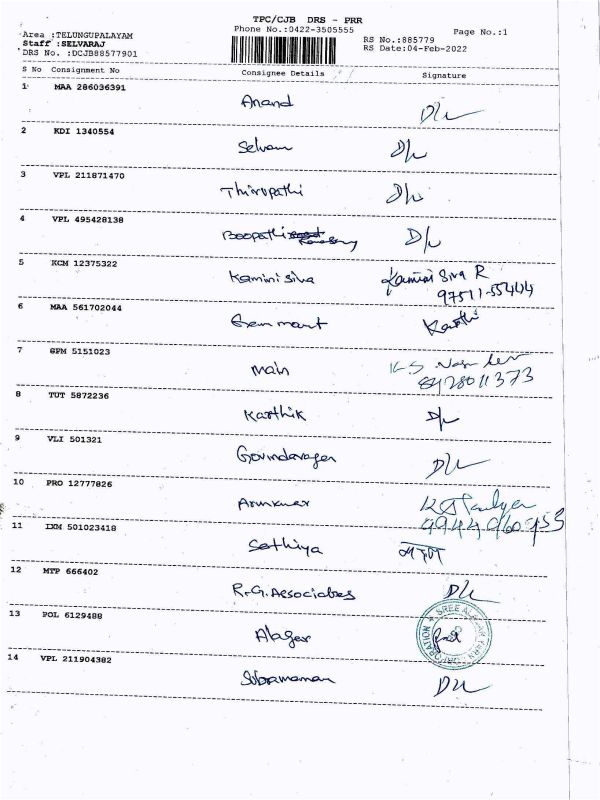 TPC/CJB DRS - PRR
Phone No.:0422-3505555
Page No.:1
Area :TELUNGUPALAYAM
Staff :SELVARAJ
DRS No. :DCJB88577901
RS No.:885779
RS Date:04-Feb-2022
S No Consignment No Consignee Details Signature
1 MAA 286036391 Anand D/L
2 KDI 1340554 Selvam D/L
3 VPL 211871470 Thirupathi D/L
4 VPL 495428138 Boopathi D/L
5 KCM 12375322 Kamini siva Kamini Siva R
97511-55444
6 MAA 561702044 Gem mart Karthi
7 GPM 5151023 main K-S
8428011373
8 TUT 5872236 Karthik D/L
9 VLI 501321 Govindaragan D/L
10 PRO 12777826 Arunkumar
9944960953
11 IXM 501023418 Sathiya
12 MTP 666402 R.G. Associates D/L
13 POL 6129488 Alagar
14 VPL 211904382 Subramanian D/L